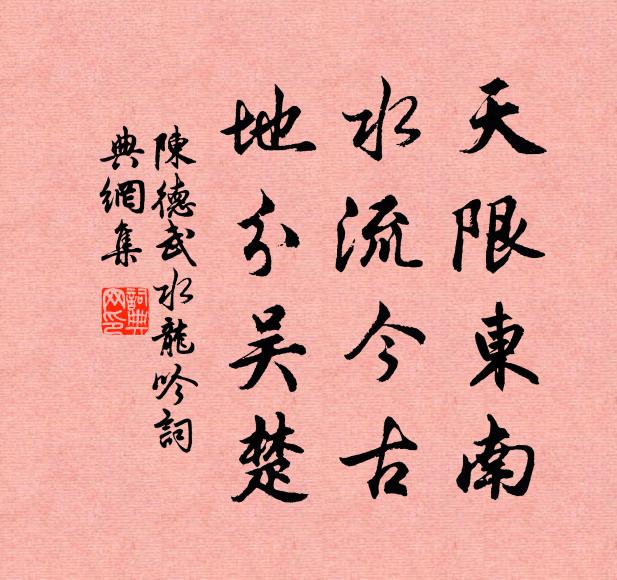 天限東南
水流今古
地分吴楚
陳德武水龍吟詞
典網集
詞典
网印